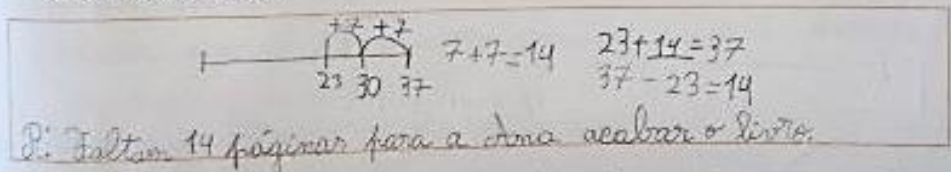 +7 +7
7+7=14 23+14=37
23 30 37 37-23=14
R: Faltam 14 páginas para a Ana acabar o livro.